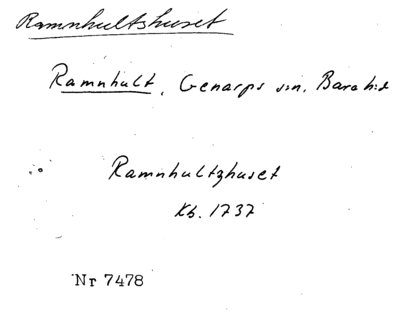 Ramnhultshuset
Ramnhult, Genarps sn. Bara hd
Ramnhultzhuset
Kb. 1737
Nr 7478